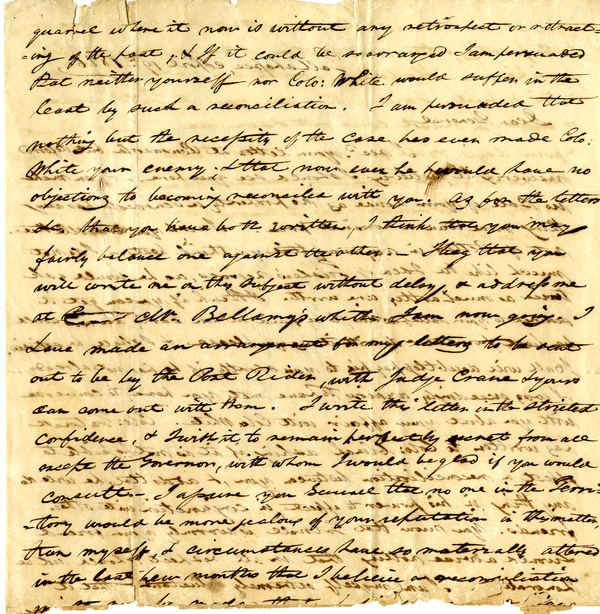 quarrel where it now is without any retrospect or retract=
=ing of the past, & If it could be so arranged I am persuaded
that neither yourself nor Colo: White would suffer in the
least by such a reconciliation. I am persuaded that
nothing but the necessity of the case has ever made Colo:
White your enemy, & that now even he would have no
objections to becoming reconciled with you. As for the letters
&c that you have both written, I think that you may
fairly balance one against the other – I beg that you
will write me on this subject without delay, & address me
at Mr. Bellamy's whither I am now going. I
have made an arrangement for my letters to be sent
out to be by the Post Rider, with Judge Crane & yours
can come out with them. I write this letter in the strictest
confidence, & I wish it to remain perfectly secret from all
except the Governor, with whom I would be glad if you would
consult – I assure you General that no one in the Terri=
=tory would be more jealous of your reputation in this matter,
than myself, & circumstances have so materially altered
in the last few months that I believe a reconciliation